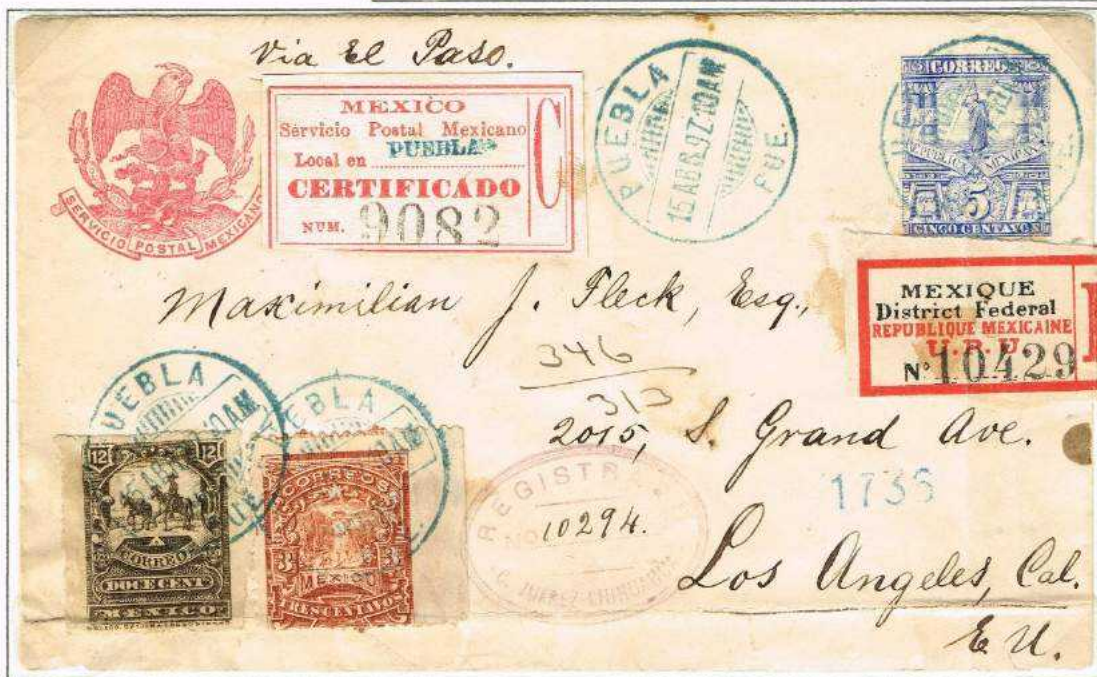 Via El Paso.
SERVICIO POSTAL MEXICANO
MEXICO
Servicio Postal Mexicano
Local en PUEBLA
CERTIFICADO
NUM. 9082
C
PUEBLA
15 ABR. 97. 10 AM
PUE
CORREOS
REPUBLICA MEXICANA
5
CINCO CENTAVOS
MEXIQUE
District Federal
REPUBLIQUE MEXICAINE
U.P.U.
Nº 10429
Maximilian J. Fleck, Esq.,
346
313
2015, S. Grand Ave.
1736
Los Angeles, Cal.
E U.
REGISTR
10294.
C. JUAREZ CHIHUAHUA
PUEBLA
PUE
12 12
CORREO
DOCE CENT
MEXICO
PUEBLA
CORREOS
3 3
MEXICO
TRES CENTAVOS